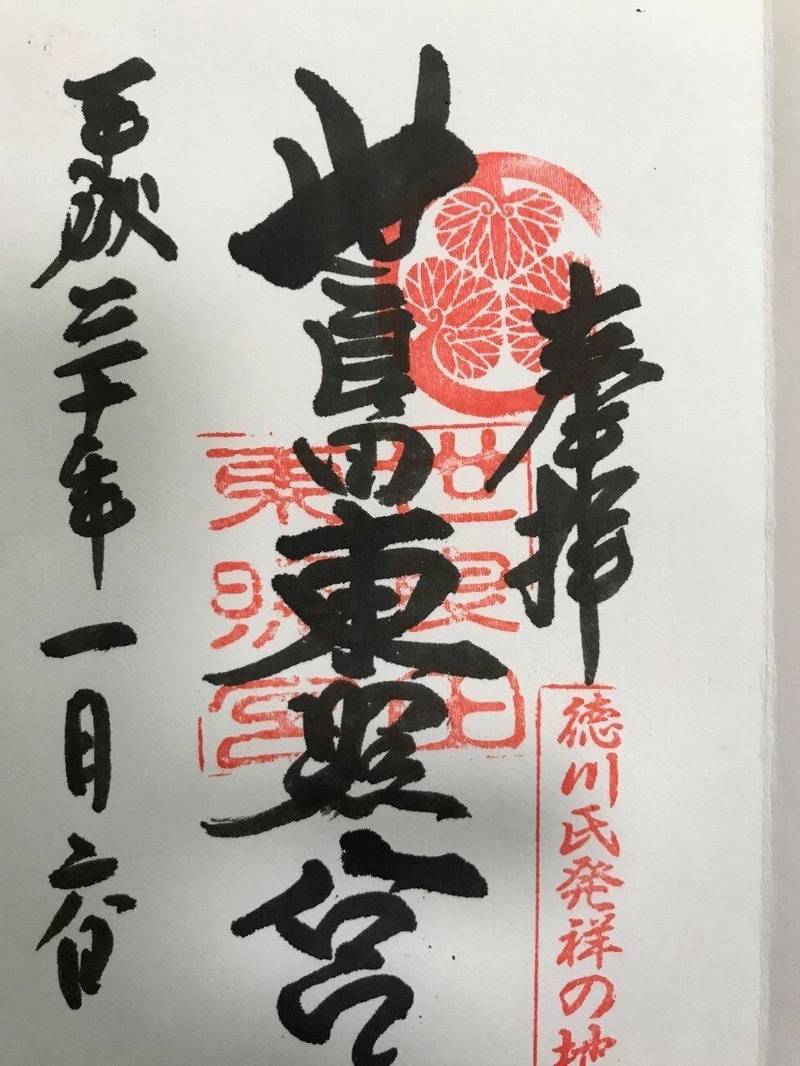 奉拝
徳川氏発祥の地
世良田東照宮
世良田
東照宮
平成三十年一月六日